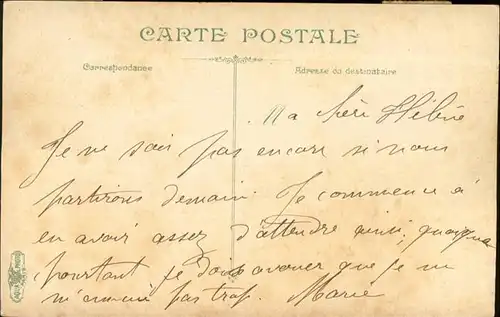 CARTE POSTALE
Correspondance
Adresse du destinataire
Ma chère Hélène
Je ne sais pas encore si nous
partirons demain. Je commence à
en avoir assez d'attendre ainsi, quoique
pourtant je dois avouer que je ne
m'ennuie pas trop. Marie